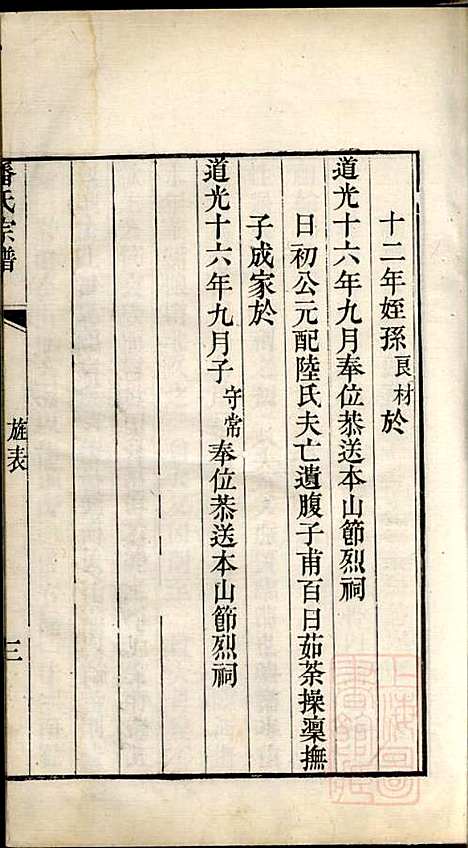 十二年姪孫良材於
道光十六年九月奉位恭送本山節烈祠
日初公元配陸氏夫亡遺腹子甫百日茹荼操凜撫
子成家於
道光十六年九月子守常奉位恭送本山節烈祠
潘氏宗譜
旌表
三
上海圖書館藏